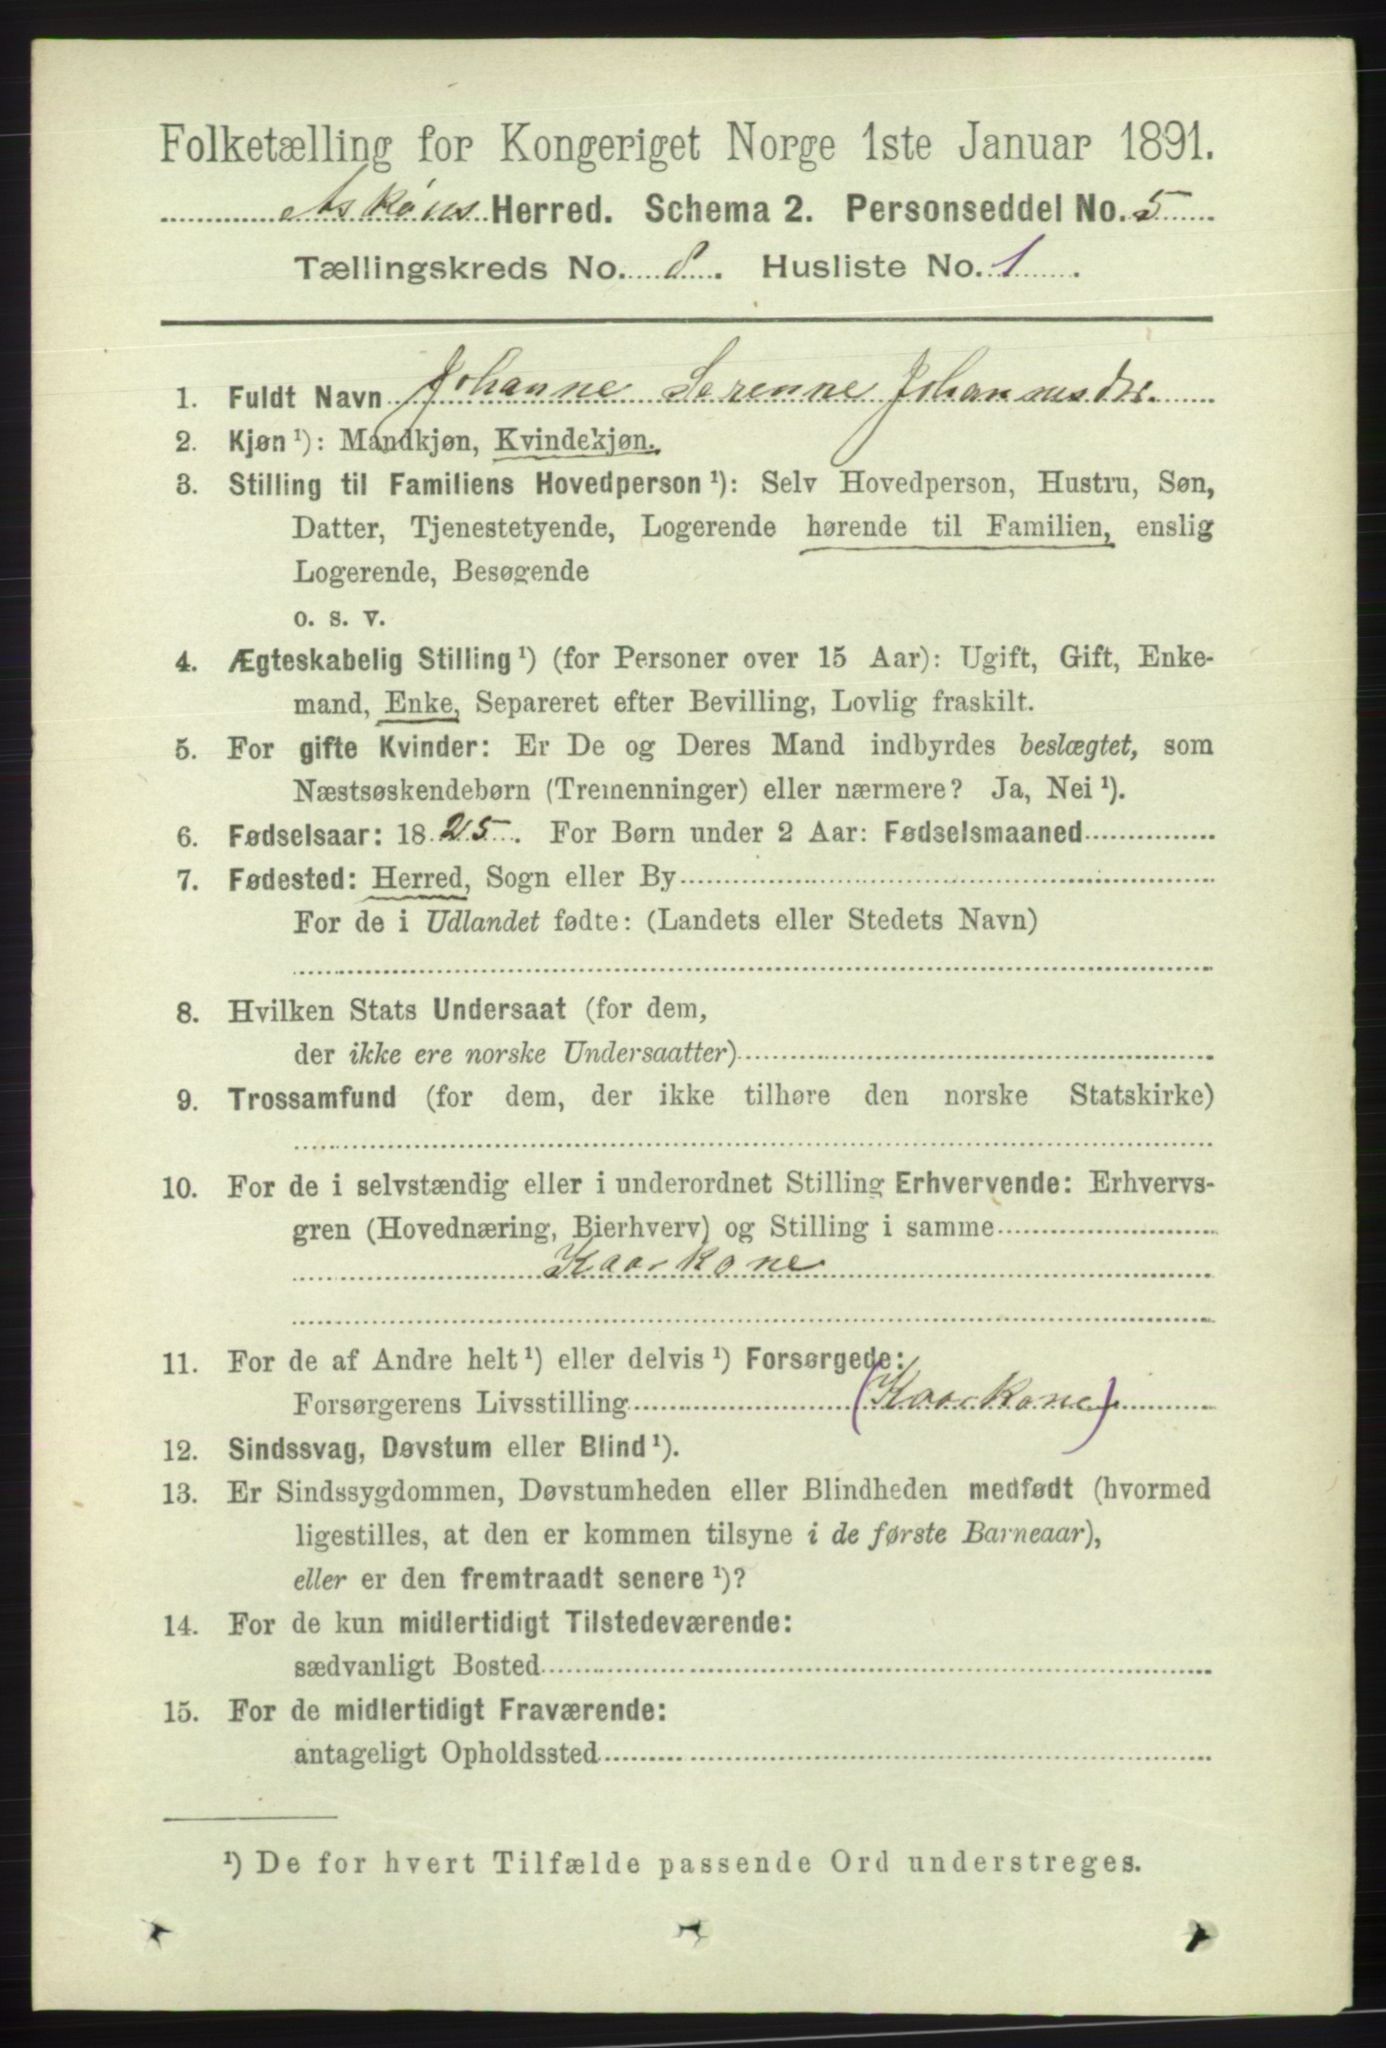 Folketælling for Kongeriget Norge 1ste Januar 1891.
Askøens Herred. Schema 2. Personseddel No. 5
Tællingskreds No. 8. Husliste No. 1.
1. Fuldt Navn Johanne Serenne Johannesdr.
2. Kjøn ¹): Mandkjøn, Kvindekjøn.
3. Stilling til Familiens Hovedperson ¹): Selv Hovedperson, Hustru, Søn,
Datter, Tjenestetyende, Logerende hørende til Familien, enslig
Logerende, Besøgende
o. s. v.
4. Ægteskabelig Stilling ¹) (for Personer over 15 Aar): Ugift, Gift, Enke-
mand, Enke, Separeret efter Bevilling, Lovlig fraskilt.
5. For gifte Kvinder: Er De og Deres Mand indbyrdes beslægtet, som
Næstsøskendebørn (Tremenninger) eller nærmere? Ja, Nei ¹).
6. Fødselsaar: 1825. For Børn under 2 Aar: Fødselsmaaned
7. Fødested: Herred, Sogn eller By
For de i Udlandet fødte: (Landets eller Stedets Navn)
8. Hvilken Stats Undersaat (for dem,
der ikke ere norske Undersaatter)
9. Trossamfund (for dem, der ikke tilhøre den norske Statskirke)
10. For de i selvstændig eller i underordnet Stilling Erhvervende: Erhvervs-
gren (Hovednæring, Bierhverv) og Stilling i samme
Kaarkone
11. For de af Andre helt ¹) eller delvis ¹) Forsørgede:
Forsørgerens Livsstilling (Kaarkone)
12. Sindssvag, Døvstum eller Blind ¹).
13. Er Sindssygdommen, Døvstumheden eller Blindheden medfødt (hvormed
ligestilles, at den er kommen tilsyne i de første Barneaar),
eller er den fremtraadt senere ¹)?
14. For de kun midlertidigt Tilstedeværende:
sædvanligt Bosted
15. For de midlertidigt Fraværende:
antageligt Opholdssted
¹) De for hvert Tilfælde passende Ord understreges.